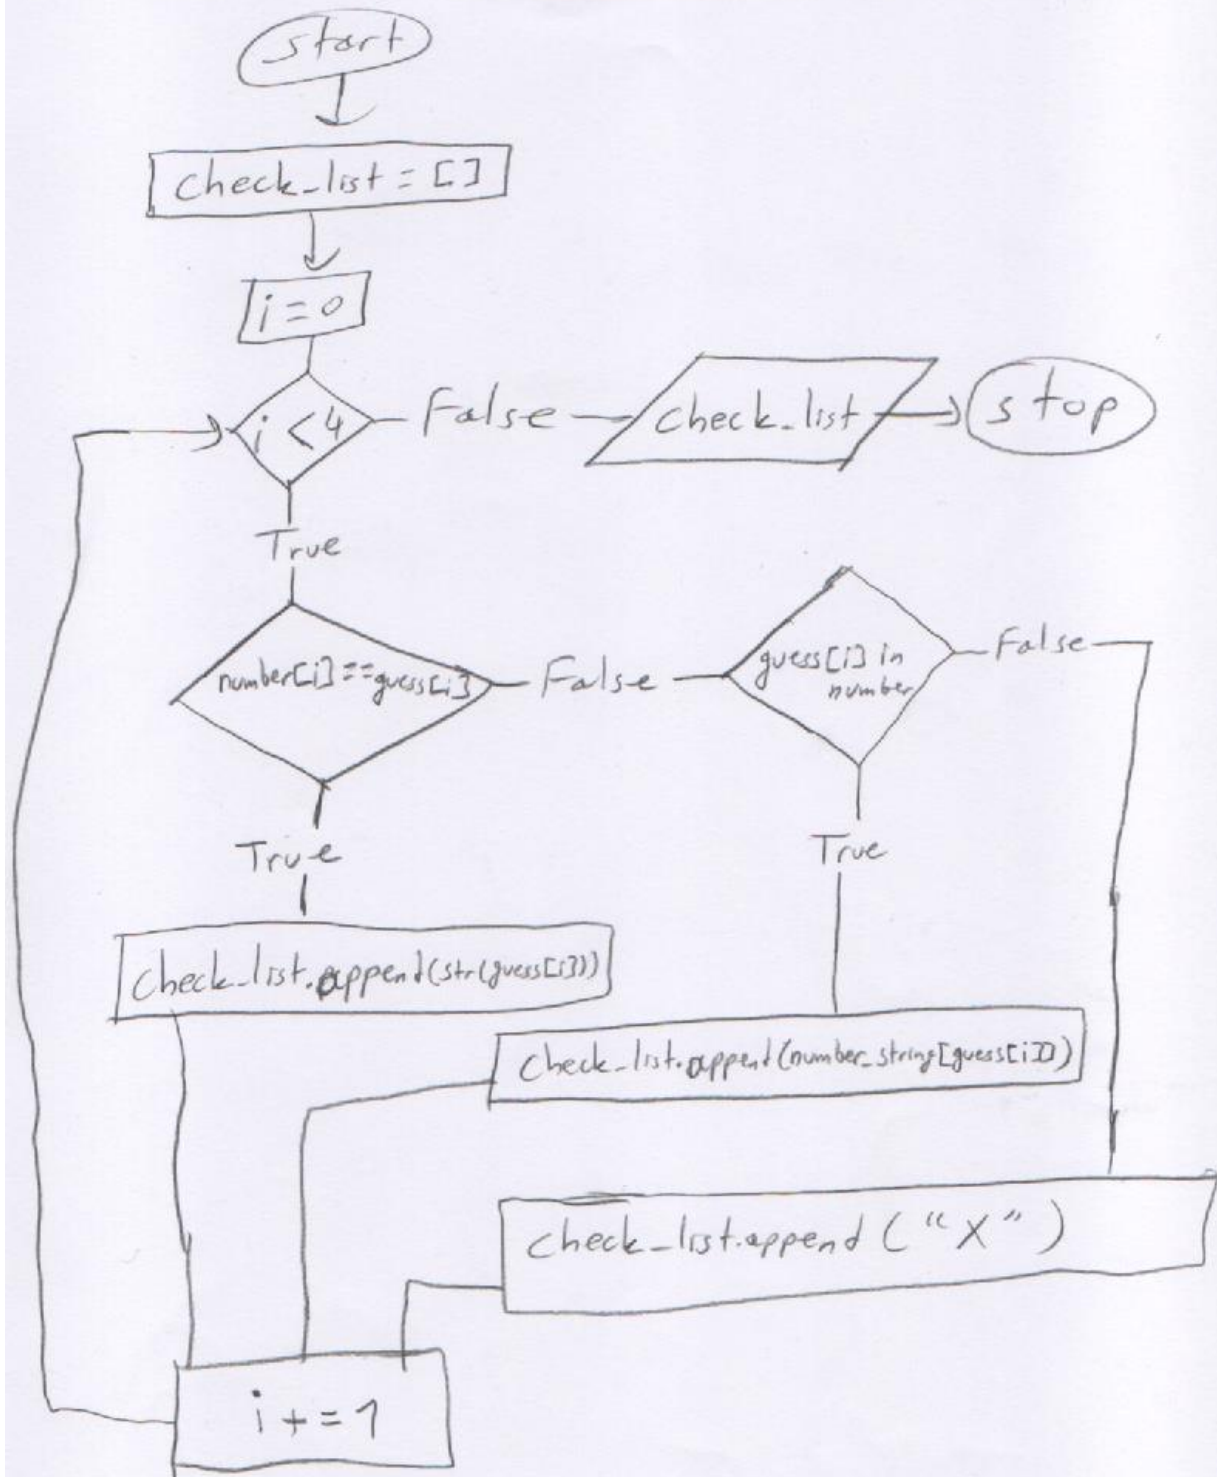 start
check_list = []
i = 0
i < 4
False
check_list
stop
True
number[i] == guess[i]
False
guess[i] in
number
False
True
True
check_list.append(str(guess[i]))
check_list.append(number_string[guess[i]])
check_list.append ("X")
i += 1